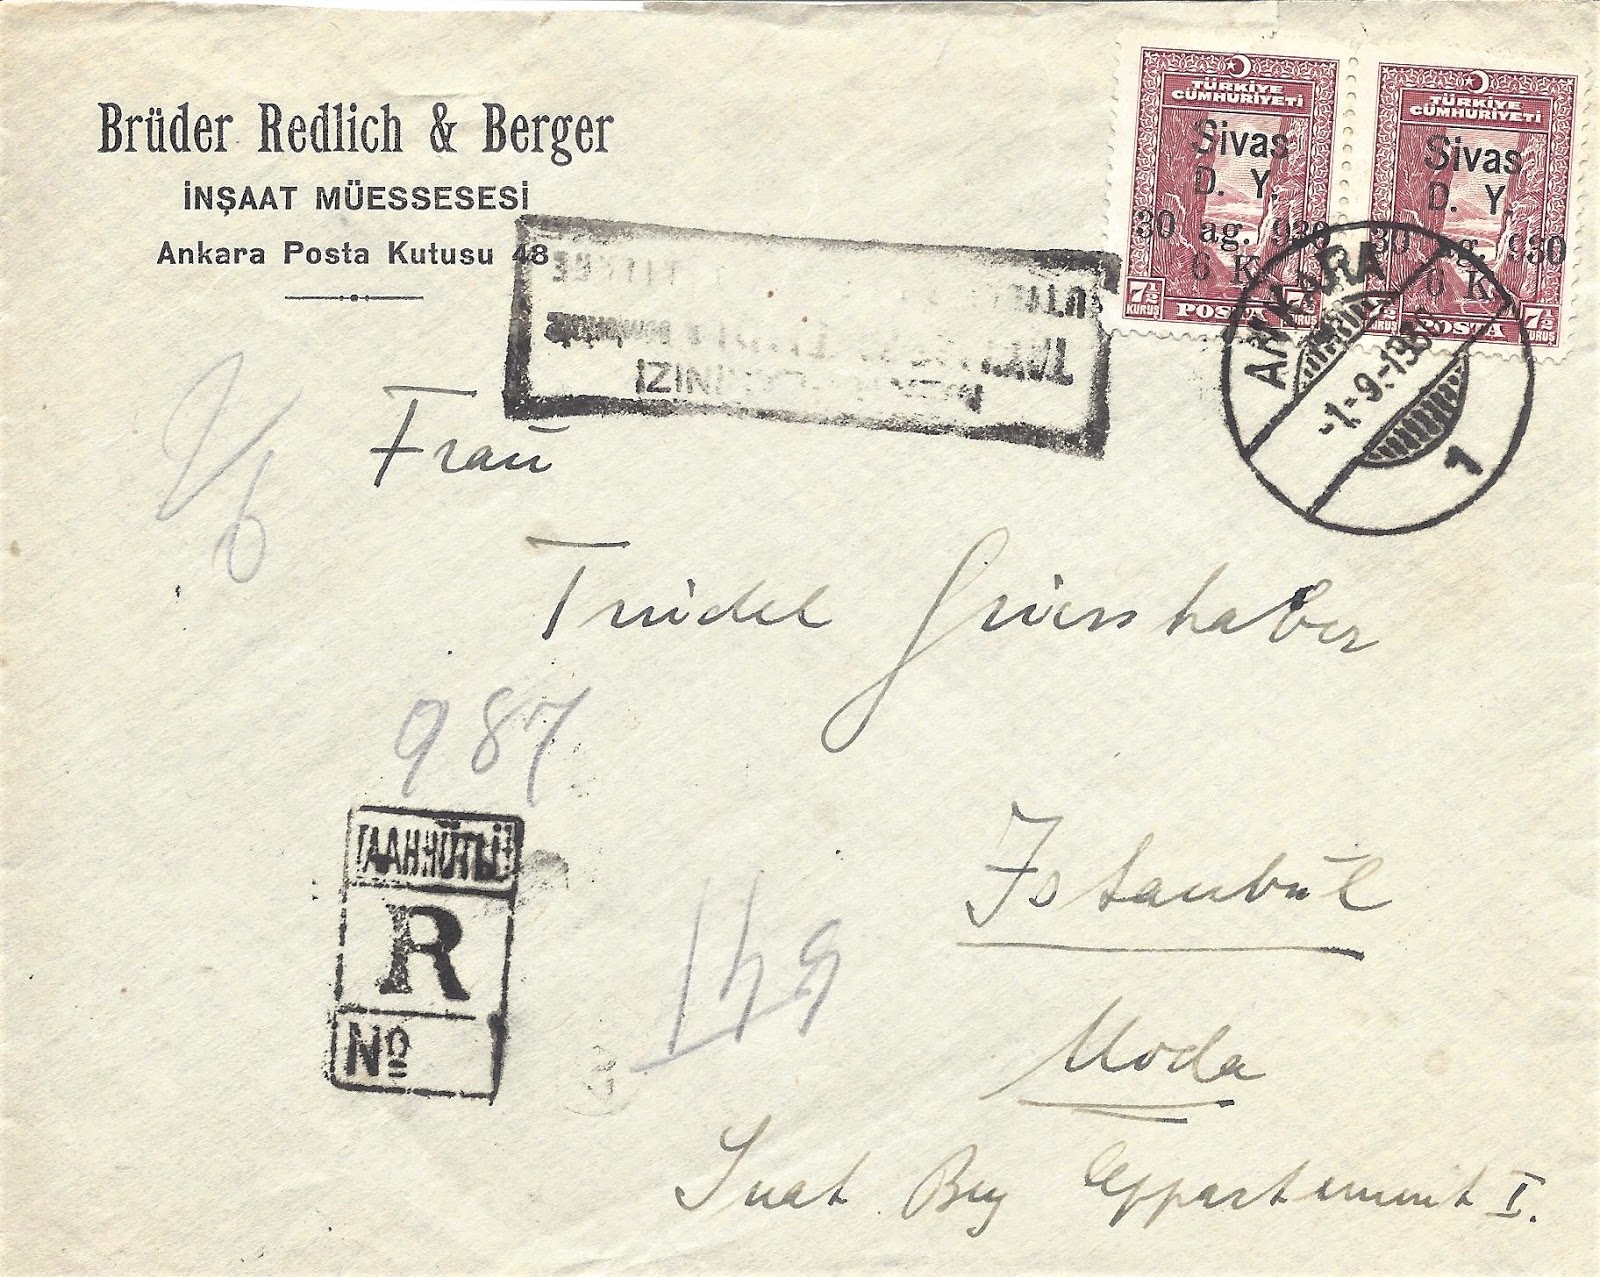 Brüder Redlich & Berger
İNŞAAT MÜESSESESİ
Ankara Posta Kutusu 48
TÜRKİYE
CÜMHURİYETİ
Sivas
D. Y.
30 ag. 930
6 K.
7½ KURUŞ POSTA 7½ KURUŞ
TÜRKİYE
CÜMHURİYETİ
Sivas
D. Y.
30 ag. 930
6 K.
7½ POSTA 7½ KURUŞ
ANKARA
-1.-9.-1930
1
Frau
Trudel Griesshaber
987
TAAHHÜTLÜ
R
Nº
149
Istanbul
Moda
Suat Bey Appartement I.